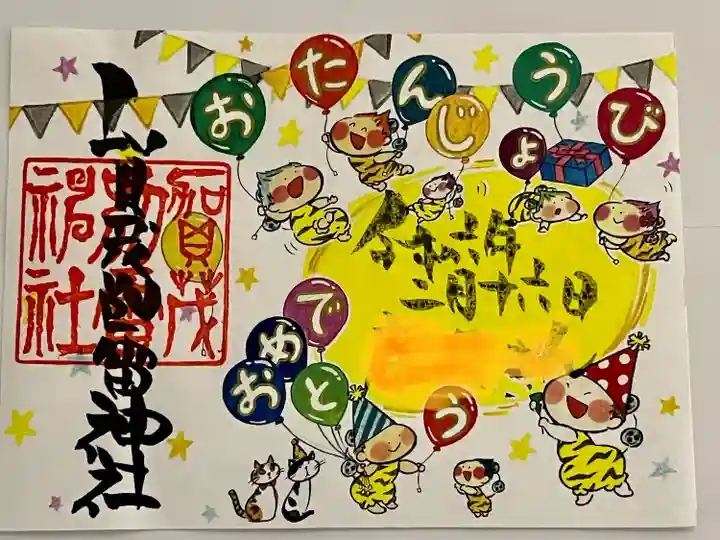 おたんじょうび
令和六年
二月十六日
おめでとう
賀茂別雷神社
賀茂
別雷
神社